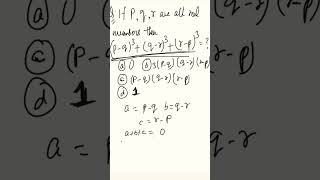 If P, q, r are all real
numbers then
(p-q)³+(q-r)³+(r-p)³=?
(a) 0 (b) 3(p-q)(q-r)(r-p)
(c) (p-q)(q-r)(r-p)
(d) 1
a = p-q b=q-r
c = r-p
a+b+c = 0